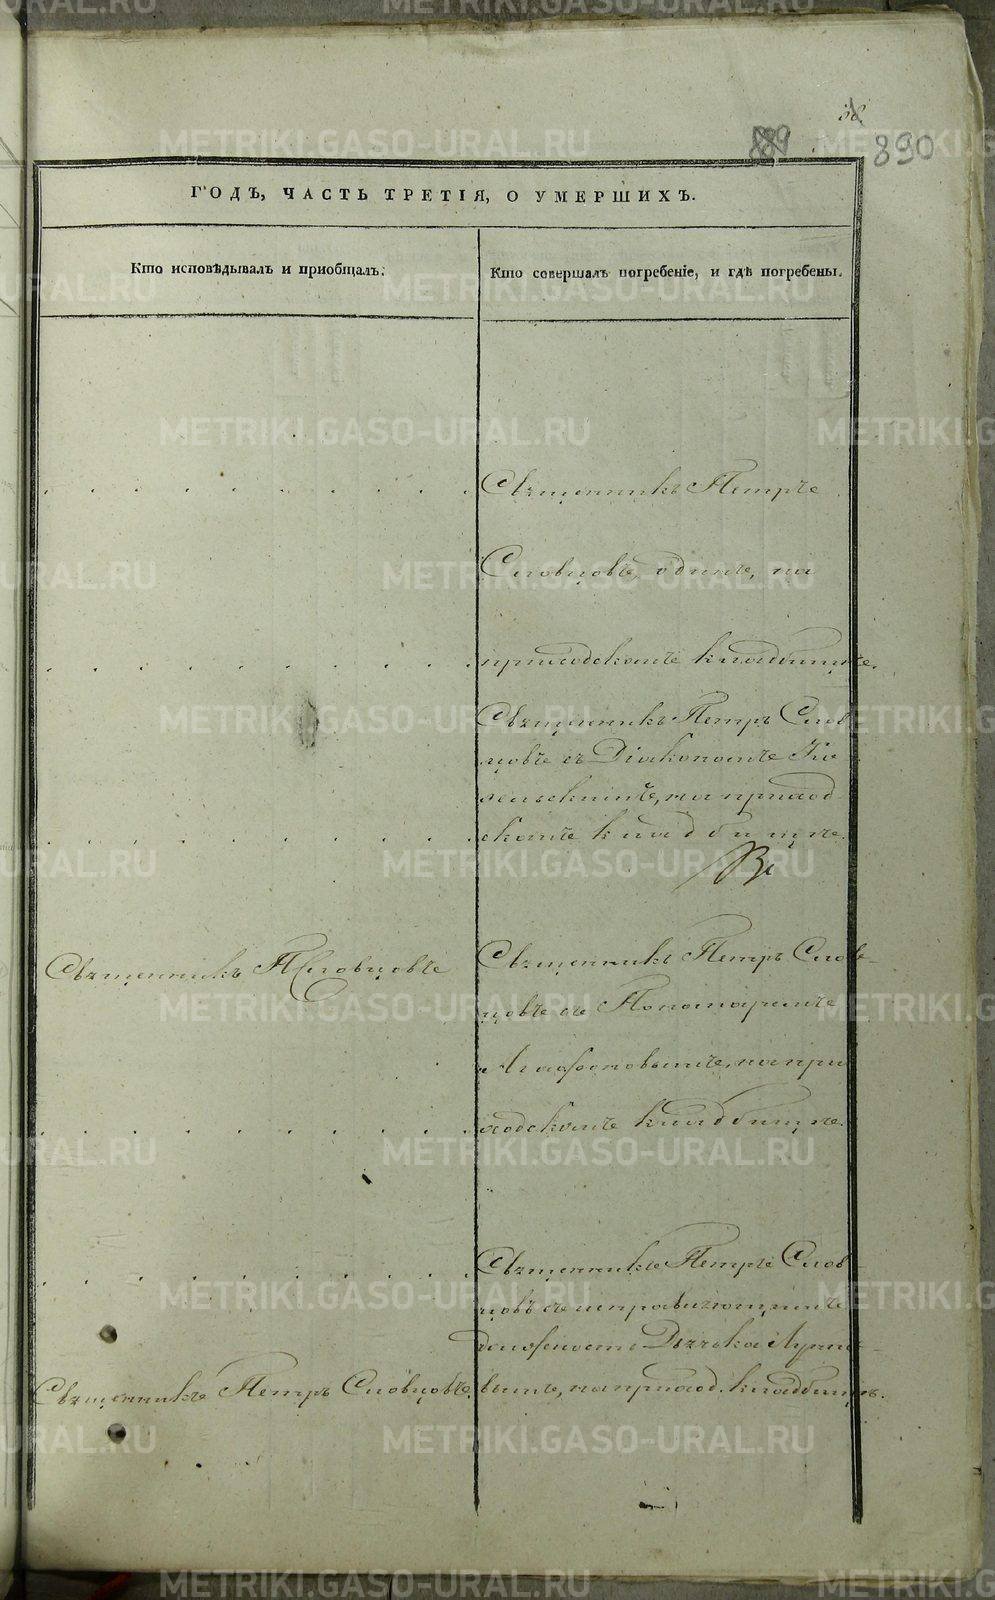 38.
889 890
ГОДЪ, ЧАСТЬ ТРЕТІЯ, О УМЕРШИХЪ.
Кто исповѣдывалъ и приобщалъ.
Кто совершалъ погребеніе, и гдѣ погребены.
Священникъ Петръ
Словцовъ, одинъ, на
приходскомъ кладбищѣ.
Священникъ Петръ Слов
цовъ съ Діакономъ
на приход
скомъ кладбищѣ.
Священникъ П Словцовъ
Священникъ Петръ Слов-
цовъ съ Пономаремъ
Агафоновымъ, на при
ходскомъ кладбищѣ.
Священникъ Петръ Слов-
цовъ съ исправляющимъ
должность Дьячка
вымъ, на приход. кладбищѣ.
Священникъ Петръ Словцовъ.
METRIKI.GASO-URAL.RU